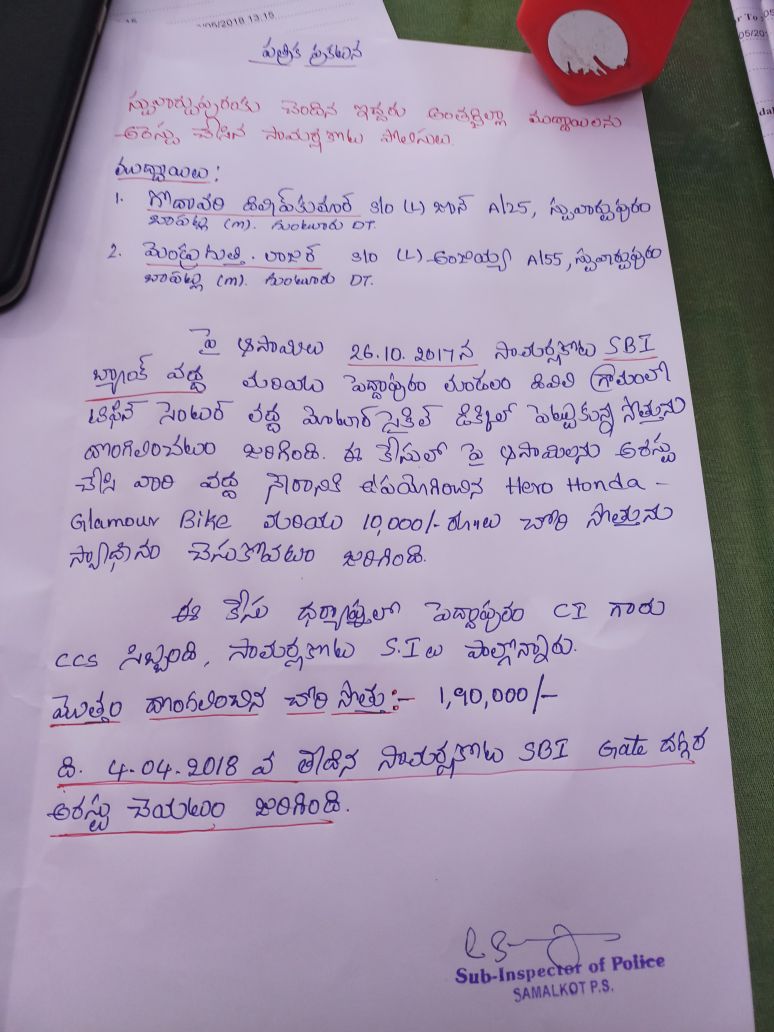 05/2018 13:15
r To: 05
05/20
పత్రిక ప్రకటన
స్టువార్టుపురంకు చెందిన ఇద్దరు అంతర్జిల్లా ముద్దాయిలను
అరెస్టు చేసిన సామర్లకోట పోలీసులు.
ముద్దాయిలు:
1. గోదావరి శివాహ్‌కుమార్ S/o (L) జాన్ A/25, స్టువార్టుపురం
బాపట్ల (m). గుంటూరు DT.
2. మెండ్రగుత్తి. లాజర్ S/o (L) అంజయ్య A/55, స్టువార్టుపురం
బాపట్ల (m). గుంటూరు DT.
పై ఆసామిలు 26.10.2017న సామర్లకోట SBI
బ్యాంక్ వద్ద మరియు పెద్దాపురం మండలం దివిలి గ్రామంలో
టిఫిన్ సెంటర్ వద్ద మోటార్ సైకిల్ డిక్కీలో పెట్టుకున్న సొత్తును
దొంగిలించటం జరిగింది. ఈ కేసులో పై ఆసామిలను అరెస్టు
చేసి వారి వద్ద నేరానికి ఉపయోగించిన Hero Honda -
Glamour Bike మరియు 10,000/- రూ॥లు చోరి సొత్తును
స్వాధీనం చేసుకోవటం జరిగింది.
ఈ కేసు ధర్యాప్తులో పెద్దాపురం CI గారు
CCS సిబ్బంది, సామర్లకోట S.I లు పాల్గొన్నారు.
మొత్తం దొంగలించిన చోరి సొత్తు:- 1,90,000/-
ది. 4.04.2018 వ తేదిన సామర్లకోట SBI Gate దగ్గర
అరెస్టు చేయటం జరిగింది.
Sub-Inspector of Police
SAMALKOT P.S.